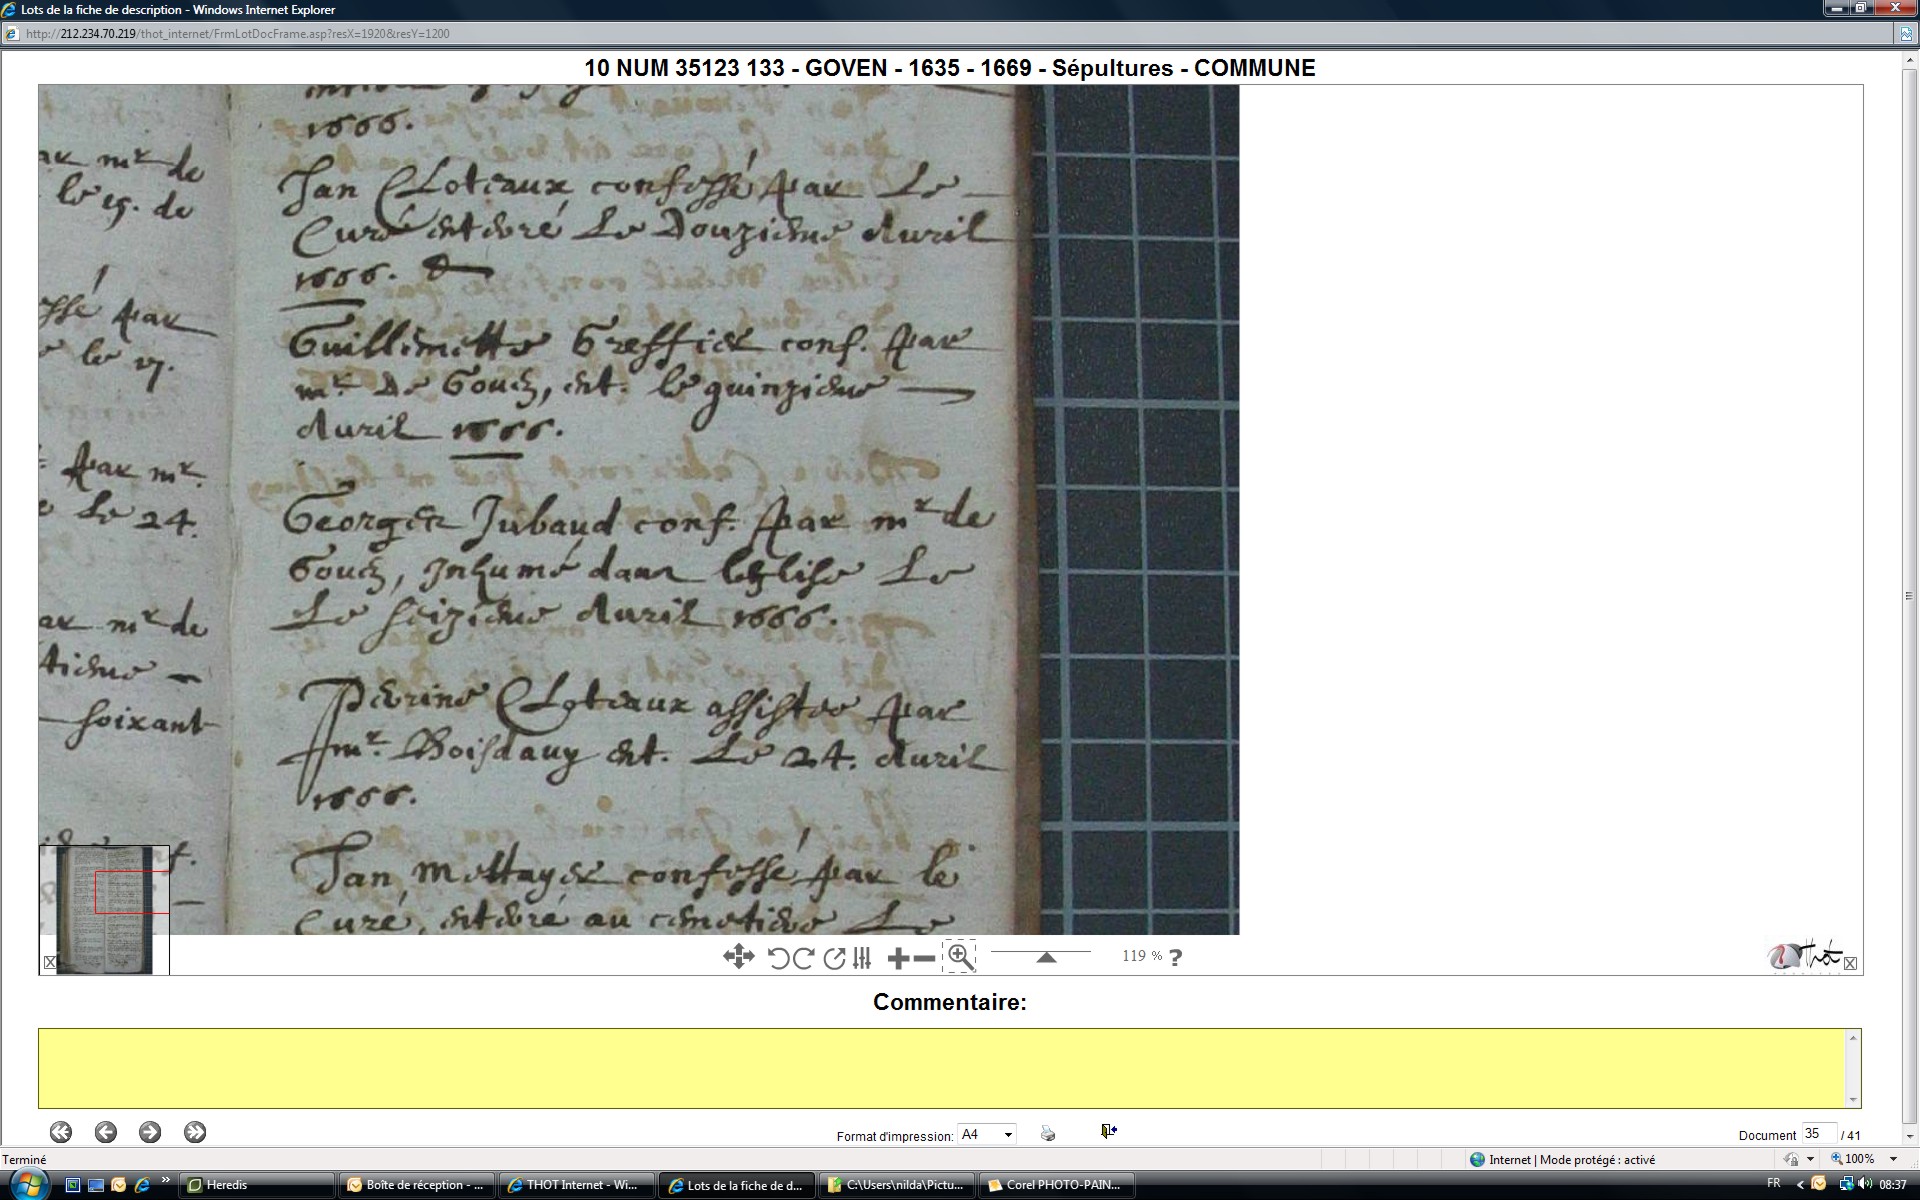 Lots de la fiche de description - Windows Internet Explorer
http://212.234.70.219/thot_internet/FrmLotDocFrame.asp?resX=1920&resY=1200
10 NUM 35123 133 - GOVEN - 1635 - 1669 - Sépultures - COMMUNE
1666.
Jan Cloteaux confessé par Le
Curé enterré Le Douzieme Avril
1666.
Guillemette Greffier conf. par
mr De Gouez, ent. le quinzieme
Avril 1666.
Georges Jubaud conf. par mr de
Gouez, Inhumé dans leglise Le
Le seizieme Avril 1666.
Perrine Cloteaux assistee par
mr. Boisdavy ent. Le 24. Avril
1666.
Jan mettayer confessé par le
Curé, enterré au cimetiere Le
ar mr de
le 15. de
ssé par
le 17.
par mr.
Le 24.
ar mr de
tieme
soixant
f.
119 % ?
Thot
Commentaire:
Format d'impression: A4
Document 35 / 41
Terminé
Internet | Mode protégé : activé
100%
Heredis
Boîte de réception - ...
THOT Internet - Wi...
Lots de la fiche de d...
C:\Users\nilda\Pictu...
Corel PHOTO-PAIN...
FR
08:37